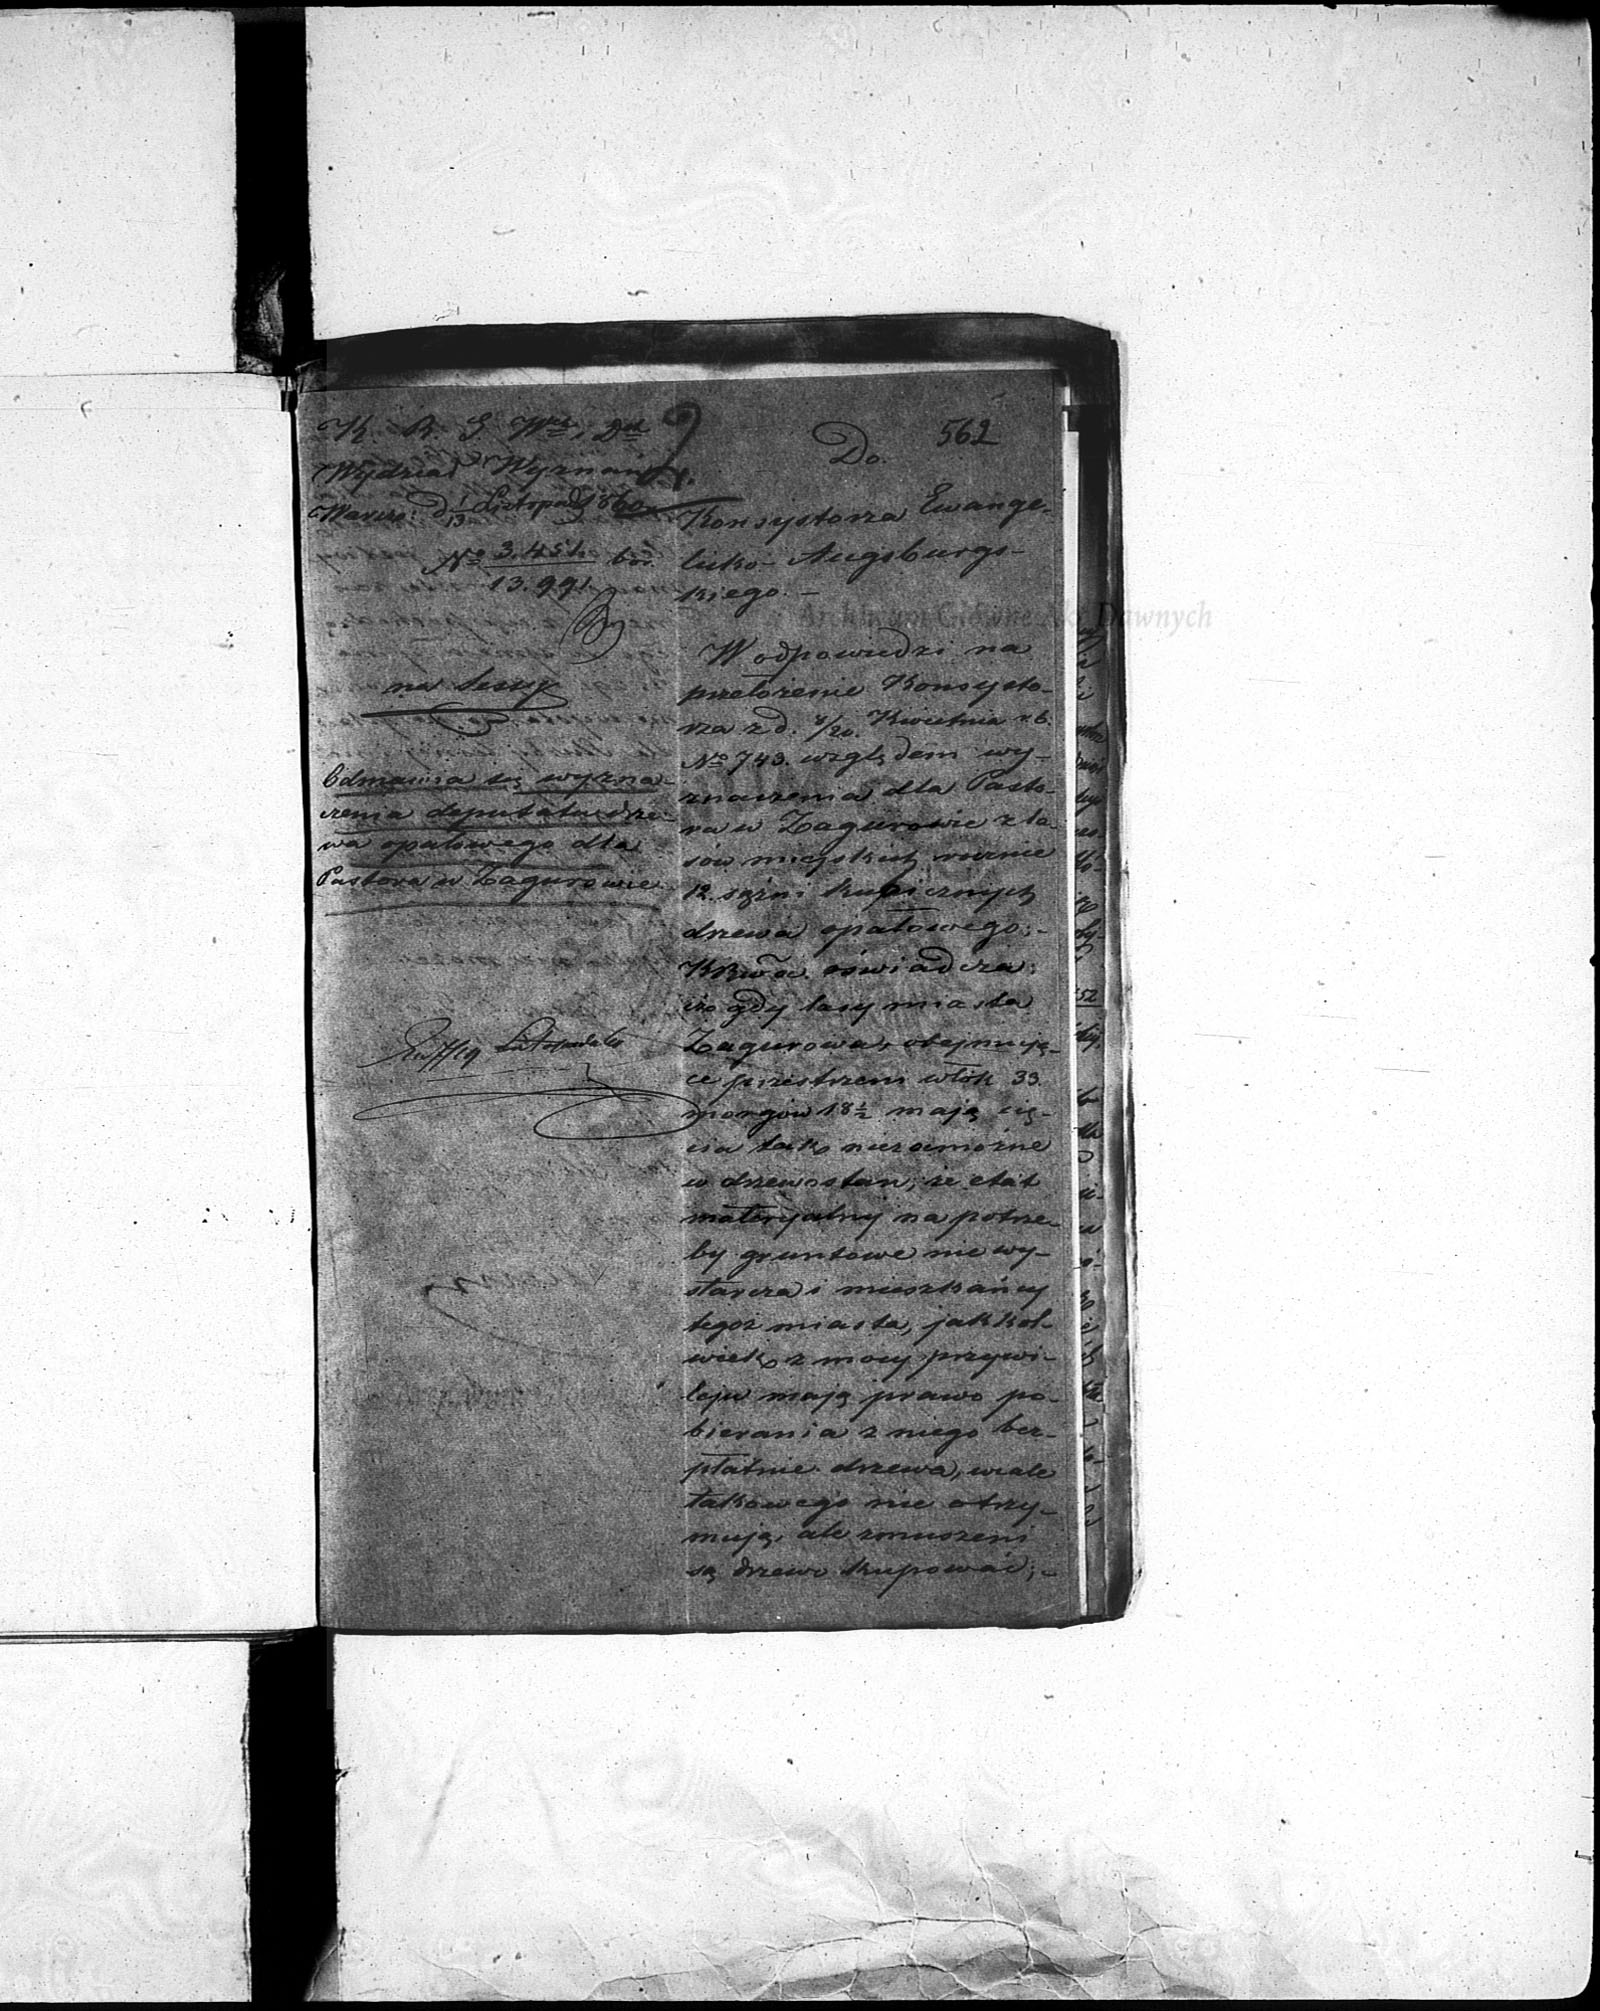 K. R. S. Wch. i Dch
Wydział Wyznań
Warsza: d 1/13 Listopada 1860
№ 3.451. / 13.991.
na Sessyę
Odmawia się wyzna-
czenia deputatu drze-
wa opałowego dla
Pastora w Zagurowie.
562
Do.
Konsystorza Ewange-
licko-Augsburgs-
kiego.-
W odpowiedzi na
przełożenie Konsysto-
rza z d. 8/20. Kwietnia r.b.
№ 743. względem wy-
znaczenia dla Pasto-
ra w Zagurowie z la-
sów miejskich rocznie
12. sążni kubicznych
drzewa opałowego;-
KRząwa. oświadcza;
iż gdy lasy miasta
Zagurowa, obejmują-
ce przestrzeni włók 33.
morgów 18½ mają cię-
cia tak niezamożne
w drzewostan, że etat
materyalny na potrze-
by gruntowe nie wy-
starcza i mieszkańcy
tegoż miasta, jakkol-
wiek z mocy przywi-
leju mają prawo po-
bierania z niego bez-
płatnie drzewa, wcale
takowego nie otrzy-
mują, ale zmuszeni
są drzewo kupować;-
Archiwum Główne Akt Dawnych